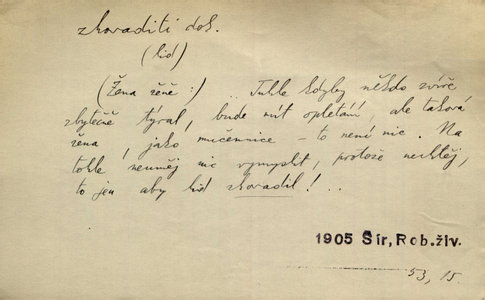 zhovaditi dok.
(lid)
(Žena ženě:) .. Tuhle kdyby někdo zvíře
zbytečně týral, bude mít opletání, ale taková
žena, jako mučennice - to není nic. Na
tohle neuměj nic vymyslit, protože nechtěj,
to jen aby lid zhovadil! ..
1905 Šír, Rob. živ.
53, 15.